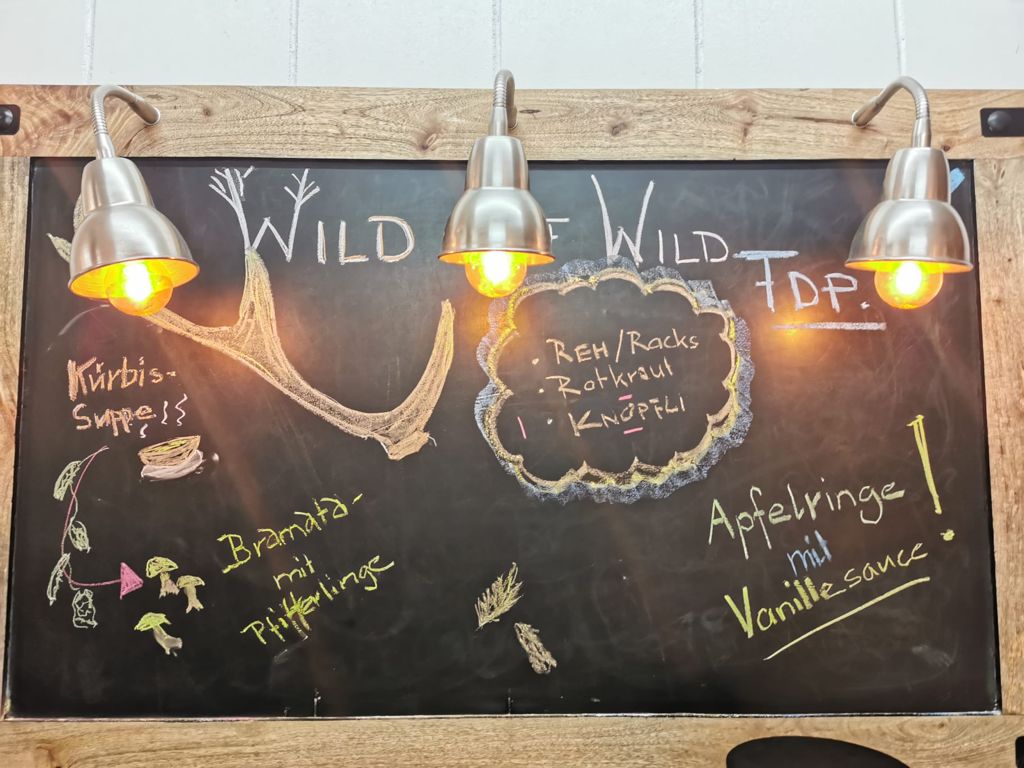 WILD WILD
TDP.
Kürbis-
Suppe
· REH/Racks
· Rotkraut
· KNÖPFLI
Bramata-
mit
Pfifferlinge
Apfelringe !
mit
Vanillesauce